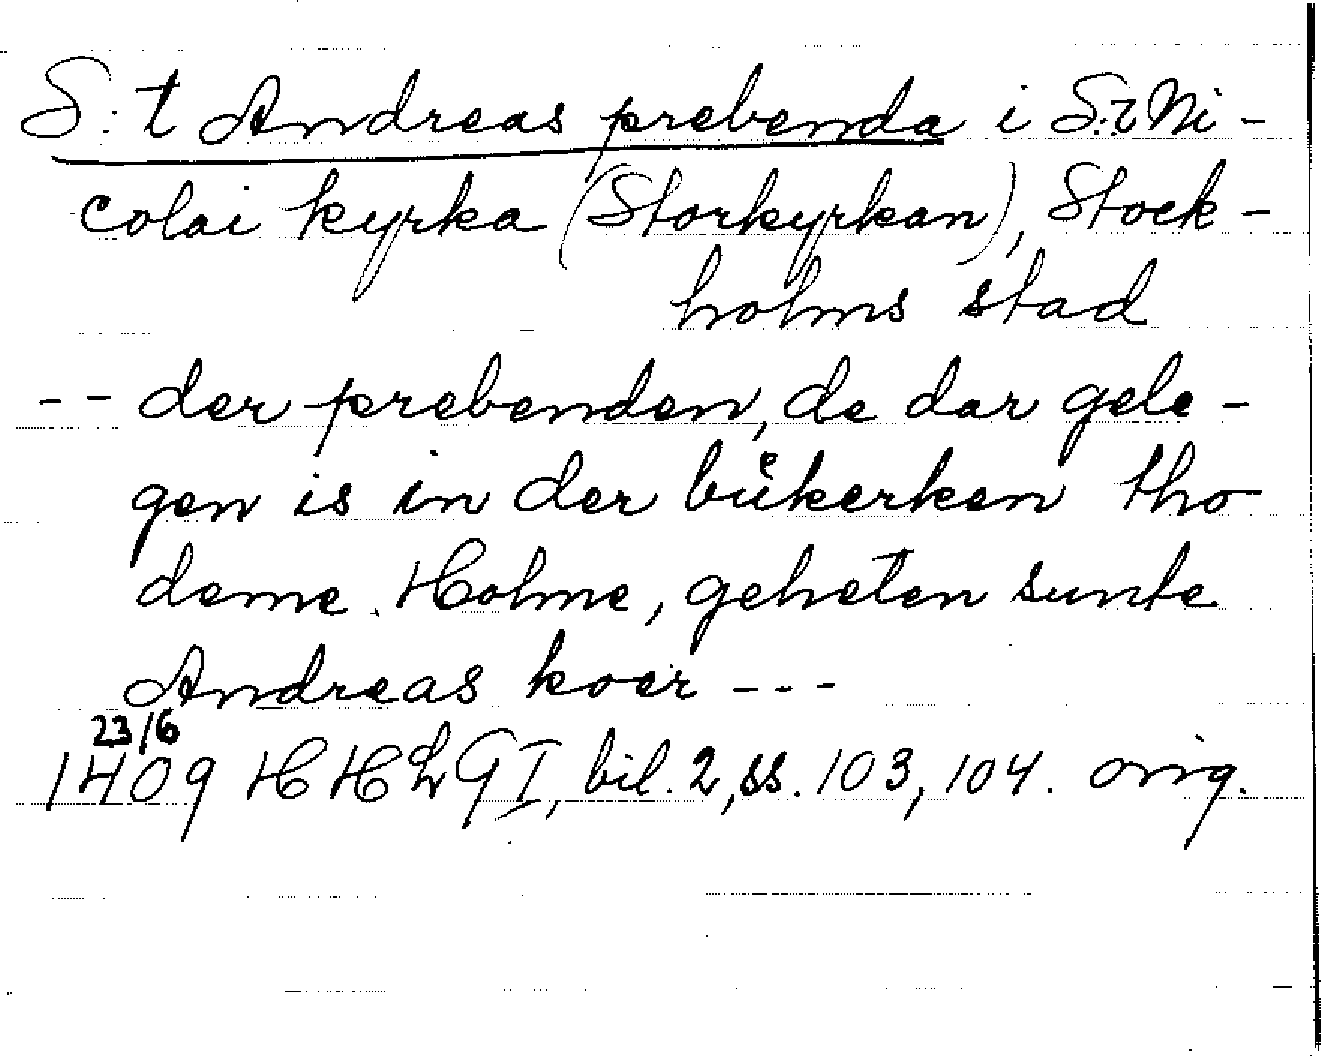 S:t Andreas prebenda i S:t Ni-
colai kyrka (Storkyrkan), Stock-
holms stad
-- der prebenden, de dar gele-
gen is in der bůkerken tho
deme Holme, geheten sunte
Andreas koer ---
23/6
1409 HHLG I, bil. 2, ss. 103, 104. orig.